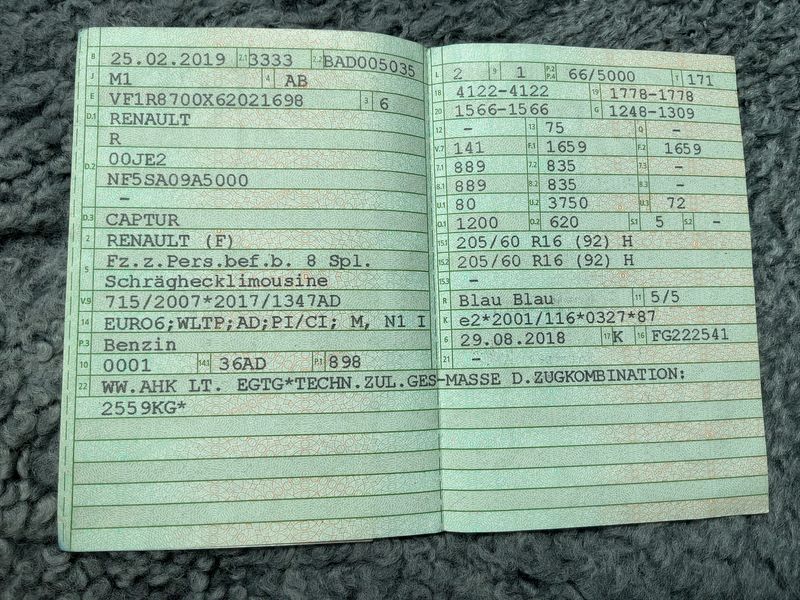 B 25.02.2019 2.1 3333 2.2 BAD005035
J M1 4 AB
E VF1R8700X62021698 3 6
D.1 RENAULT
R
D.2 00JE2
NF5SA09A5000
-
D.3 CAPTUR
2 RENAULT (F)
5 Fz.z.Pers.bef.b. 8 Spl.
Schräghecklimousine
V.9 715/2007*2017/1347AD
14 EURO6;WLTP;AD;PI/CI; M, N1 I
P.3 Benzin
10 0001 14.1 36AD P.1 898
22 WW.AHK LT. EGTG*TECHN.ZUL.GES-MASSE D.ZUGKOMBINATION:
2559KG*
L 2 9 1 P.2 P.4 66/5000 T 171
18 4122-4122 19 1778-1778
20 1566-1566 G 1248-1309
12 - 13 75 Q -
V.7 141 F.1 1659 F.2 1659
7.1 889 7.2 835 7.3 -
8.1 889 8.2 835 8.3 -
U.1 80 U.2 3750 U.3 72
O.1 1200 O.2 620 S.1 5 S.2 -
15.1 205/60 R16 (92) H
15.2 205/60 R16 (92) H
15.3 -
R Blau Blau 11 5/5
K e2*2001/116*0327*87
6 29.08.2018 17 K 16 FG222541
21 -